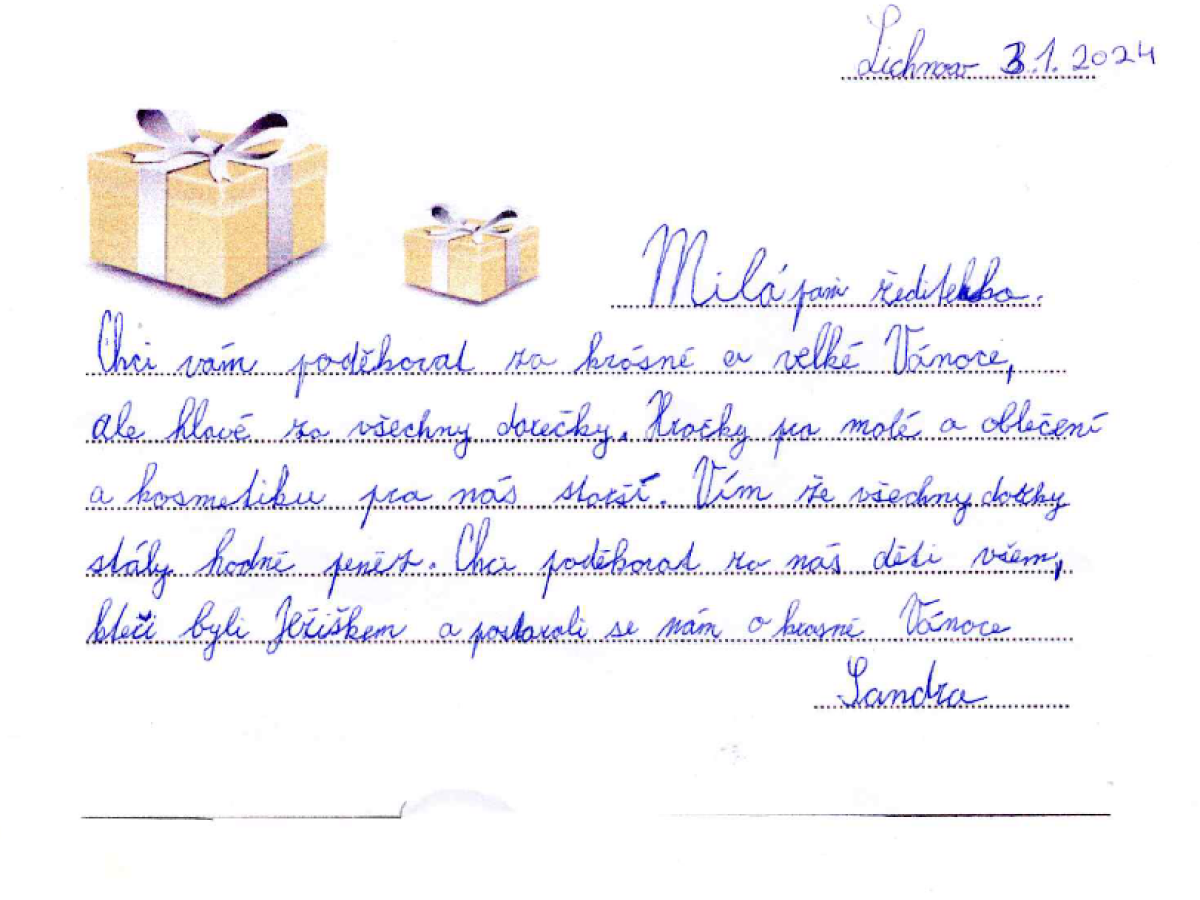 Lichnov 3.1.2024
Milá paní ředitelko.
Chci vám poděkovat za krásné a velké Vánoce,
ale hlavě za všechny darečky. Hračky pro malé a oblečení
a kosmetiku pro nás starší. Vím že všechny darky
stály hodně peněz. Chci poděkovat za nás děti všem,
kteči byli Ježiškem a postarali se nám o krasné Vánoce
Sandra